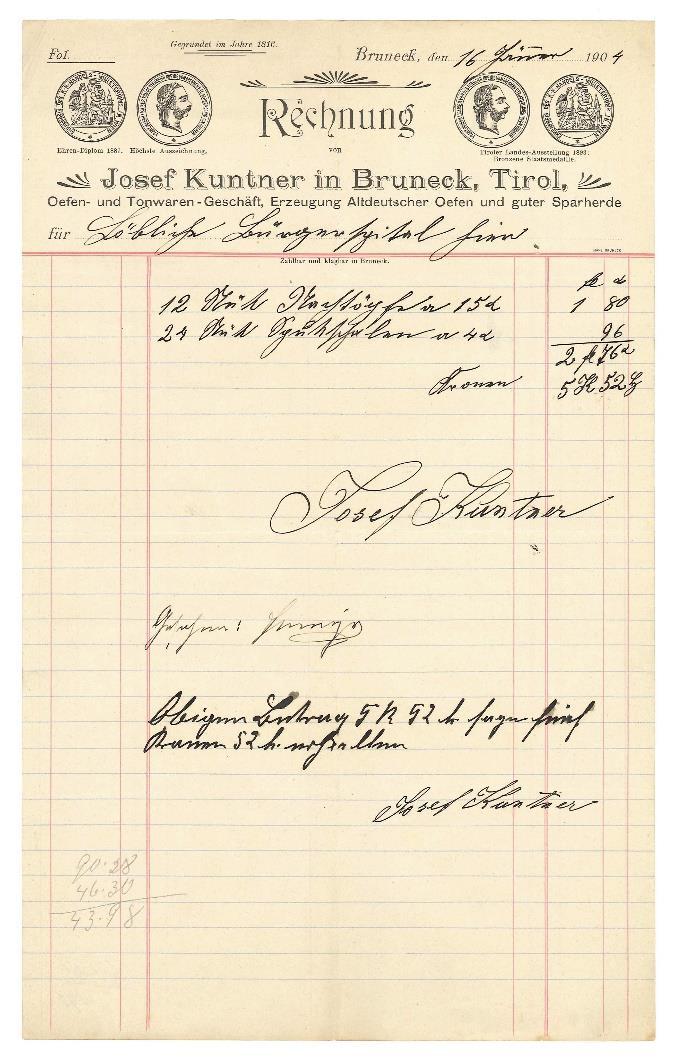 Gegründet im Jahre 1816.
Fol.
Bruneck, den 16 Jänner 1904
Ehren-Diplom 1887. Höchste Auszeichnung.
Rechnung
von
Tiroler Landes-Ausstellung 1893:
Bronzene Staatsmedaille.
Josef Kuntner in Bruneck, Tirol,
Oefen- und Tonwaren-Geschäft, Erzeugung Altdeutscher Oefen und guter Sparherde
für Löbliche Bürgerspital hier
Zahlbar und klagbar in Bruneck.
fl d
12 Stük Nachtöpfe a 15 d 1 80
24 Stük Spukschalen a 4 d 96
2 fl 76 d
Kronen 5 K 52 h
Josef Kuntner
Gesehen:
Obigen Betrag 5 K 52 h sage fünf
Kronen 52 h. erhalten
Josef Kuntner
90.28
46.30
43.98